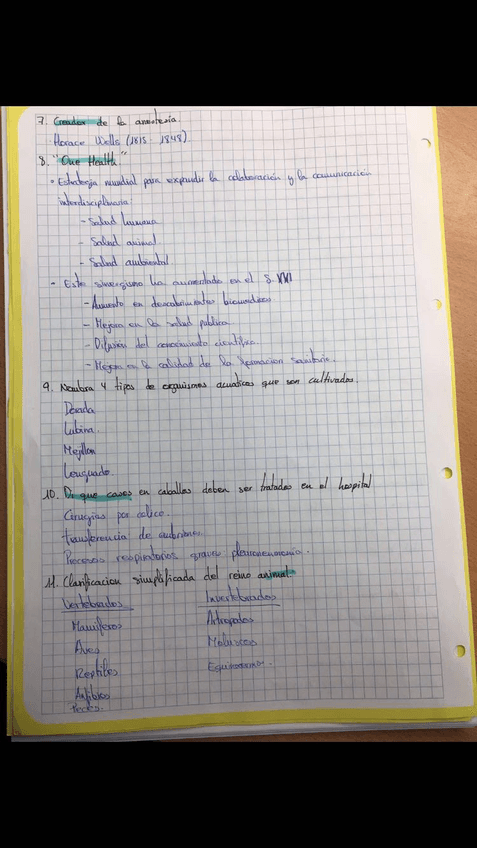 7. Creador de la anestesia.
Horace Wells (1815-1848)
8. "One Health"
• Estrategia mundial para expandir la colaboración y la comunicación
interdisciplinaria:
- Salud humana
- Salud animal
- Salud ambiental.
- Este sinergismo ha aumentado en el S. XXI
- Aumento en descubrimientos biomédicos
- Mejora en la salud publica
- Difusión del conocimiento científico
- Mejora en la calidad de la formacion sanitaria.
9. Nombra 4 tipos de organismos acuáticos que son cultivados.
Dorada
Lubina.
Mejillon
Lenguado.
10. Di que casos en caballos deben ser tratados en el hospital
Cirugias por colico.
Transferencia de embriones.
Procesos respiratorios graves pleuroneumonia.
11. Clasificacion simplificada del reino animal.
Vertebrados Invertebrados
Mamíferos Artropodos
Aves Moluscos
Reptiles Equinodermos.
Anfibios
Peces.